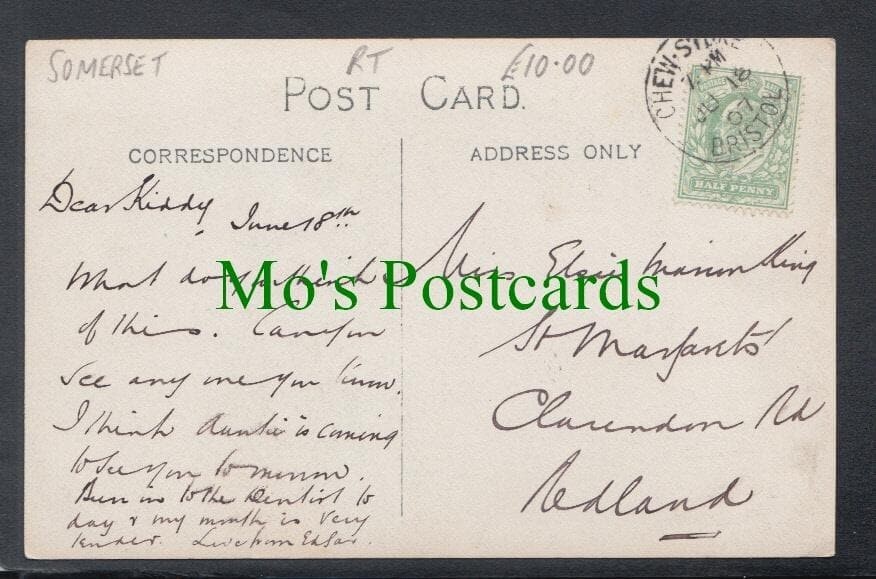 SOMERSET RT £10.00
POST CARD.
CHEW·STOKE
7 PM
JU 18
07
BRISTOL
HALF PENNY
CORRESPONDENCE
ADDRESS ONLY
Dear Kiddy
June 18th
What do you think
of this. Can you
see any one you know.
I think Auntie is coming
to see you to morrow.
Been in to the Dentist to
day & my mouth is very
tender. Love from
Miss Elsie Marion King
St Margarets
Clarendon Rd
Redland
Mo's Postcards